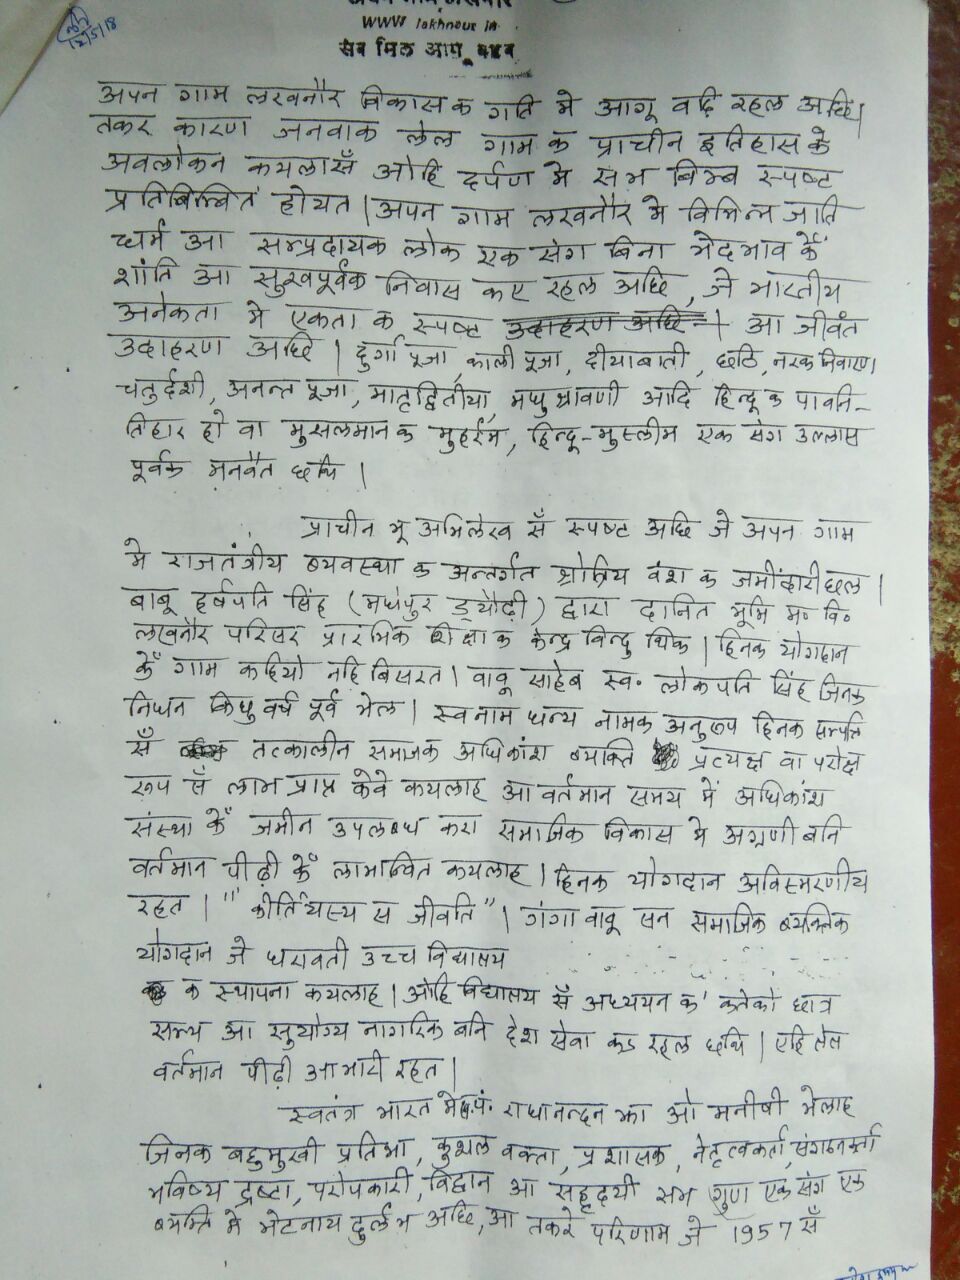 www lakhnour in
सब मिल आगू बढब
12/5/18
अपन गाम लखनौर विकास क गति मे आगू बढि रहल अछि।
तकर कारण जनवाक लेल गाम क प्राचीन इतिहास के
अवलोकन कयलासँ ओहि दर्पण मे सभ बिम्ब स्पष्ट
प्रतिबिम्बित होयत। अपन गाम लखनौर मे विभिन्न जाति
धर्म आ सम्प्रदायक लोक एक संग बिना भेदभाव कें
शांति आ सुखपूर्वक निवास कए रहल अछि, जे भारतीय
अनेकता मे एकता क स्पष्ट उदाहरण अछि। आ जीवंत
उदाहरण अछि। दुर्गा पूजा, काली पूजा, दीयाबाती, छठि, नरक निवारण
चतुर्दशी, अनन्त पूजा, भातृद्वितीया, मधुश्रावणी आदि हिन्दू क पावनि-
तिहार हो वा मुसलमान क मुहर्रम, हिन्दू-मुस्लीम एक संग उल्लास
पूर्वक मनवैत छथि।
प्राचीन भू अभिलेख सँ स्पष्ट अछि जे अपन गाम
मे राजतंत्रीय व्यवस्था क अन्तर्गत श्रोत्रिय वंश क जमींदारी छल।
बाबू हर्षपति सिंह (मधेपुर ड्यौढ़ी) द्वारा दानित भूमि म० वि०
लखनौर परिसर प्रारंभिक शिक्षा क केन्द्र विन्दु थिक। हिनक योगदान
कें गाम कहियो नहि बिसरत। वावू साहेब स्व० लोकपति सिंह जिनक
निधन किछु वर्ष पूर्व भेल। स्वनाम धन्य नामक अनुरूप हिनक सम्पत्ति
सँ तत्कालीन समाजक अधिकांश व्यक्ति प्रत्यक्ष वा परोक्ष
रूप सँ लाभ प्राप्त केवे कयलाह आ वर्तमान समय में अधिकांश
संस्था कें जमीन उपलब्ध करा समाजिक विकास मे अग्रणी बनि
वर्तमान पीढ़ी कें लाभान्वित कयलाह। हिनक योगदान अविस्मरणीय
रहत। "कीर्तियस्य स जीवति"। गंगा वावू सन समाजिक व्यक्तिक
योगदान जे धरावती उच्च विद्यालय
क स्थापना कयलाह। ओहि विद्यालय सँ अध्ययन क' कतेको छात्र
सभ्य आ सुयोग्य नागरिक बनि देश सेवा कऽ रहल छथि। एहि लेल
वर्तमान पीढ़ी आभारी रहत।
स्वतंत्र भारत मे पं. राधानन्दन झा ओ मनीषी भेलाह
जिनक बहुमुखी प्रतिभा, कुशल वक्ता, प्रशासक, नेतृत्वकर्ता, संगठनकर्ता
भविष्य द्रष्टा, परोपकारी, विद्वान आ सहृदयी सभ गुण एक संग एक
व्यक्ति मे भेटनाय दुर्लभ अछि, आ तकरे परिणाम जे 1957 सँ